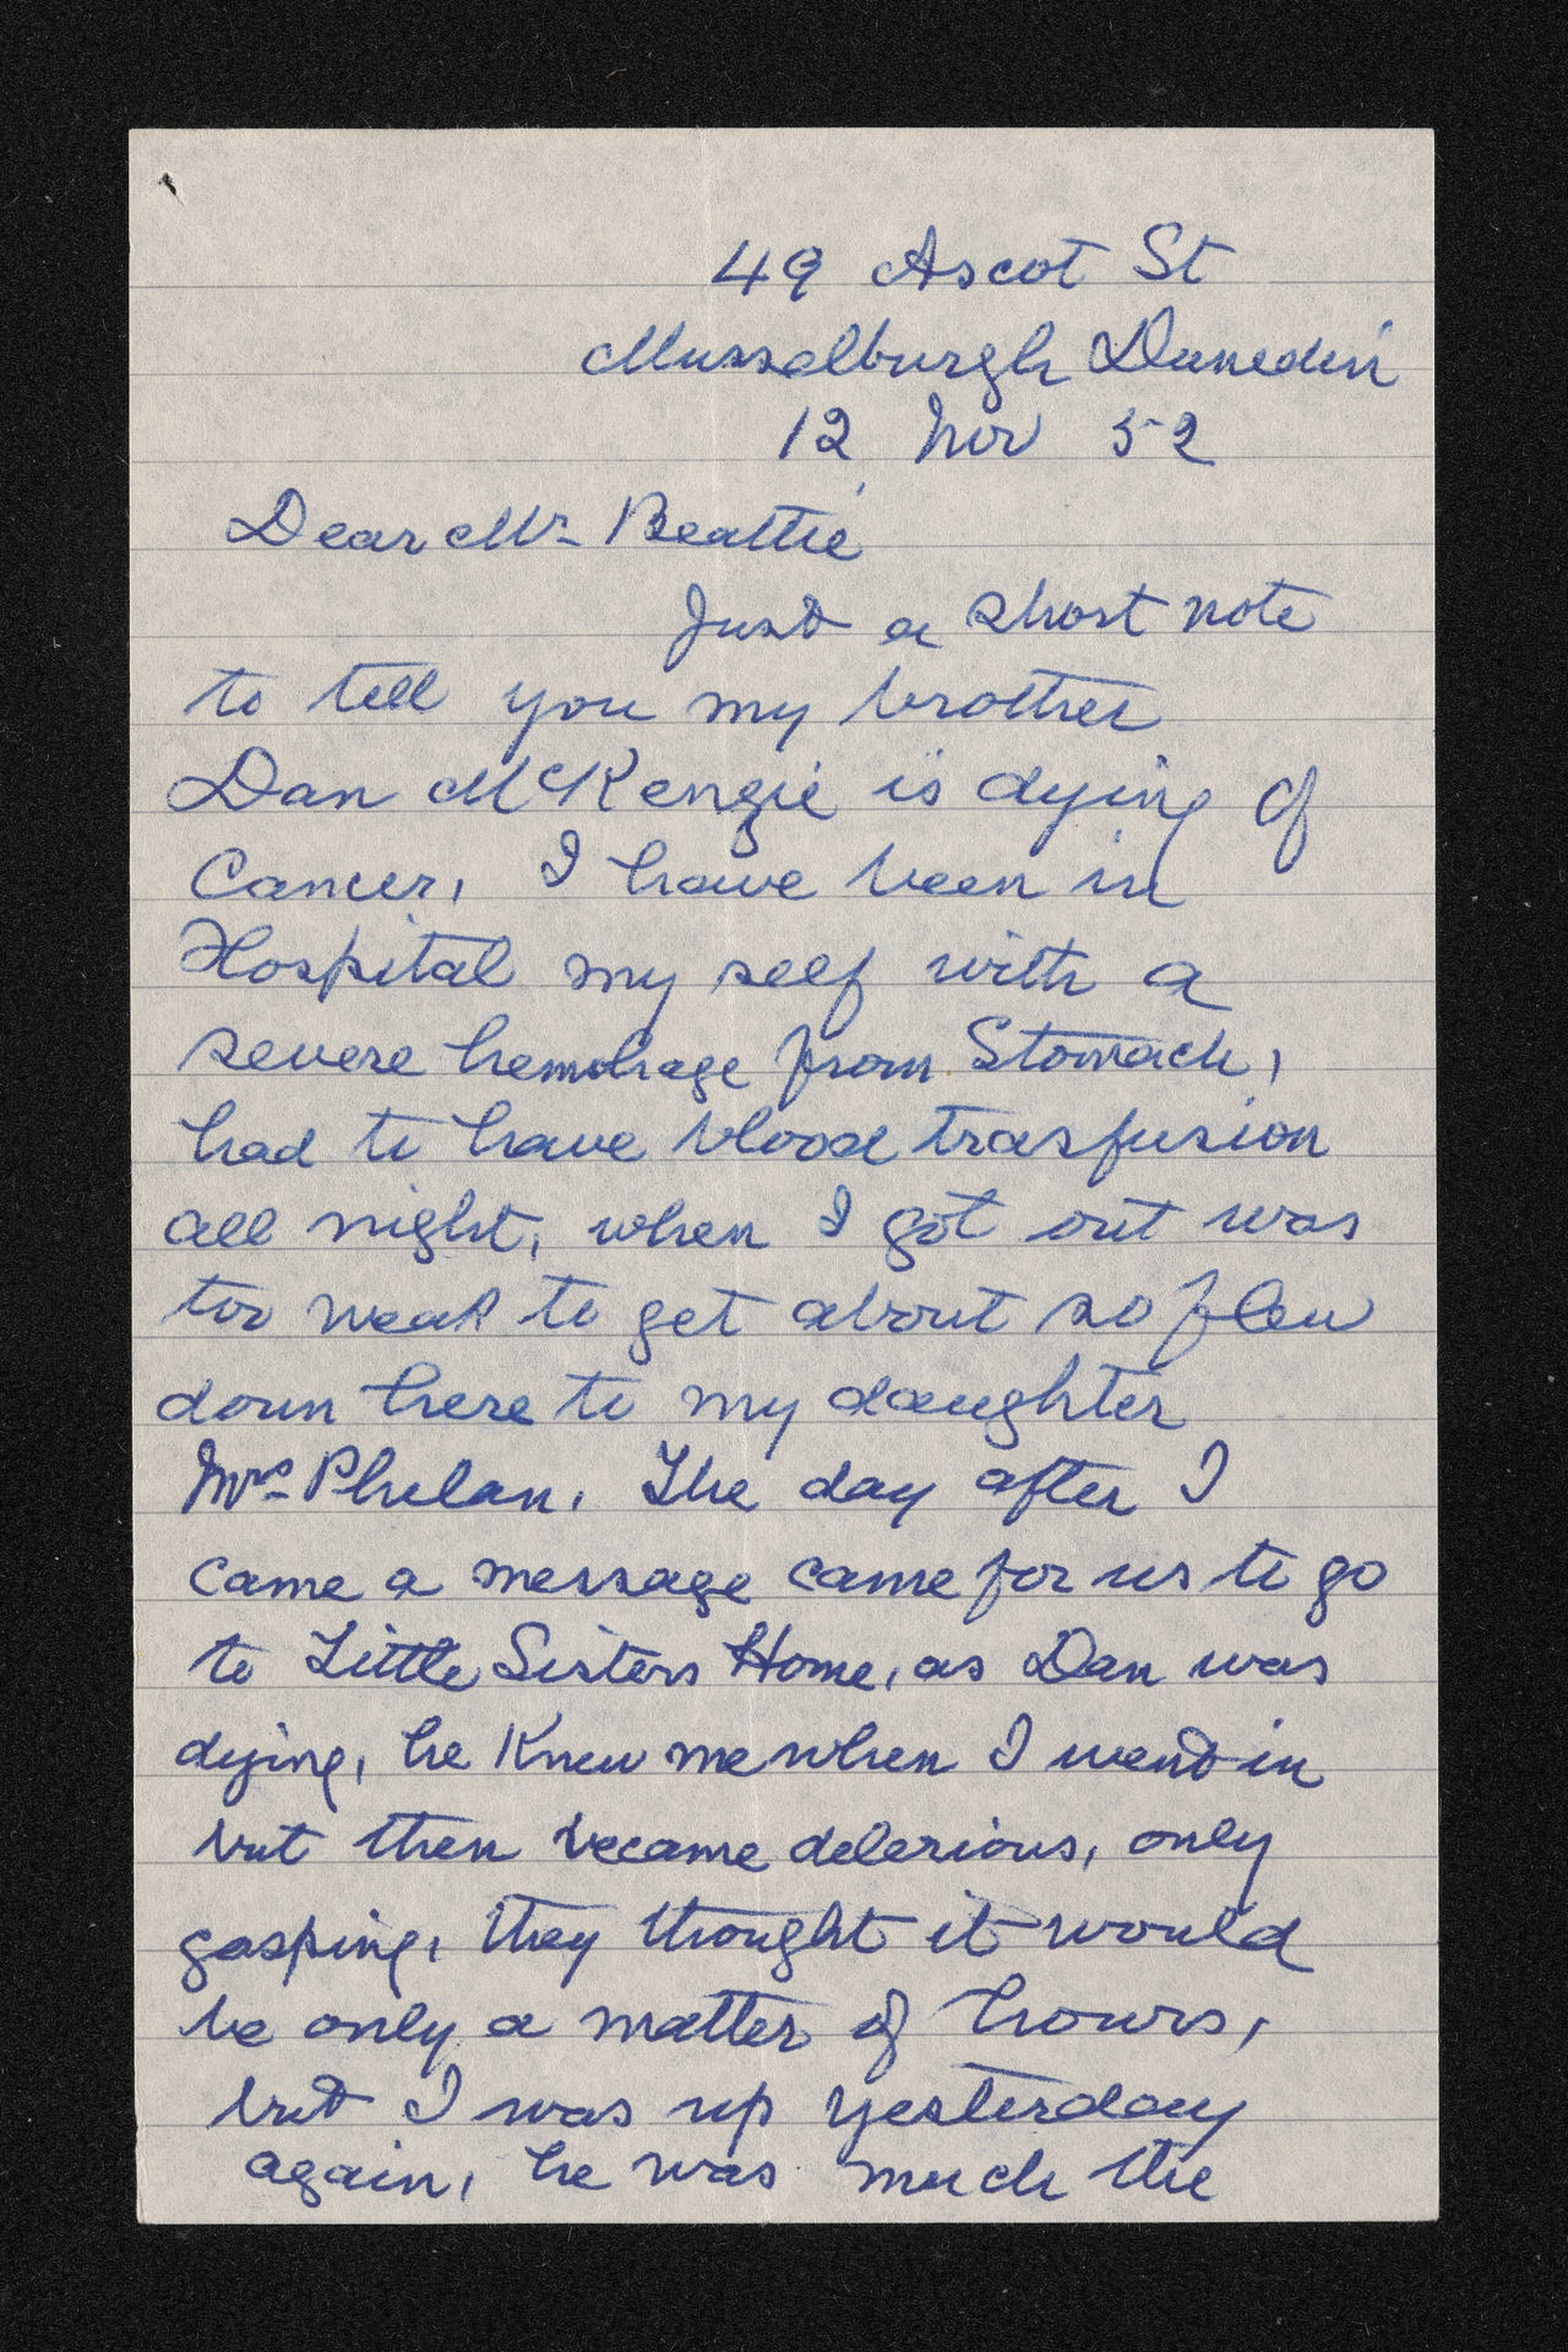 49 Ascot St
Musselburgh Dunedin
12 Nov 52
Dear Mr Beattie
Just a short note
to tell you my brother
Dan McKenzie is dying of
Cancer, I have been in
Hospital my self with a
severe hemohage from Stomach,
had to have blood trasfusion
all night, when I got out was
too weak to get about so flew
down here to my daughter
Mrs Phelan. The day after I
came a message came for us to go
to Little Sisters Home, as Dan was
dying, he knew me when I went in
but then became delerious, only
gasping, they thought it would
be only a matter of hours,
but I was up yesterday
again, he was much the